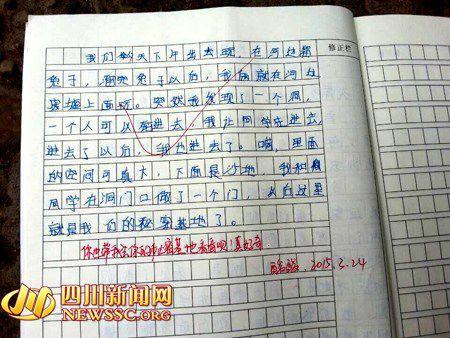 我们昨天下午出去玩，在河边
兔子，兔子以后，我们就在河边
上面玩。突然我发现了一个洞，
一个人可以进去，我让同学先进去，
进去了以后，我也进去了。哺，里面
的空间可真大，下面是沙地，我和
同学在洞门口做了一个门，从后这里
就是我们的秘密基地了。
修正栏
你也带我去你的秘密基地看看呗！真好奇。
2015.3.24
四川新闻网
NEWSSC.ORG